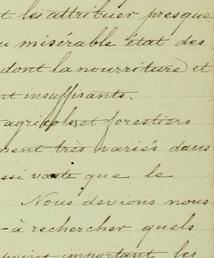 t les attribuer presque
u misérable état des
dont la nourriture et
nt insuffisants.
agricoles et forestiers
ment très variés dans
ssi vaste que le
Nous devions nous
-à rechercher quels
points important les